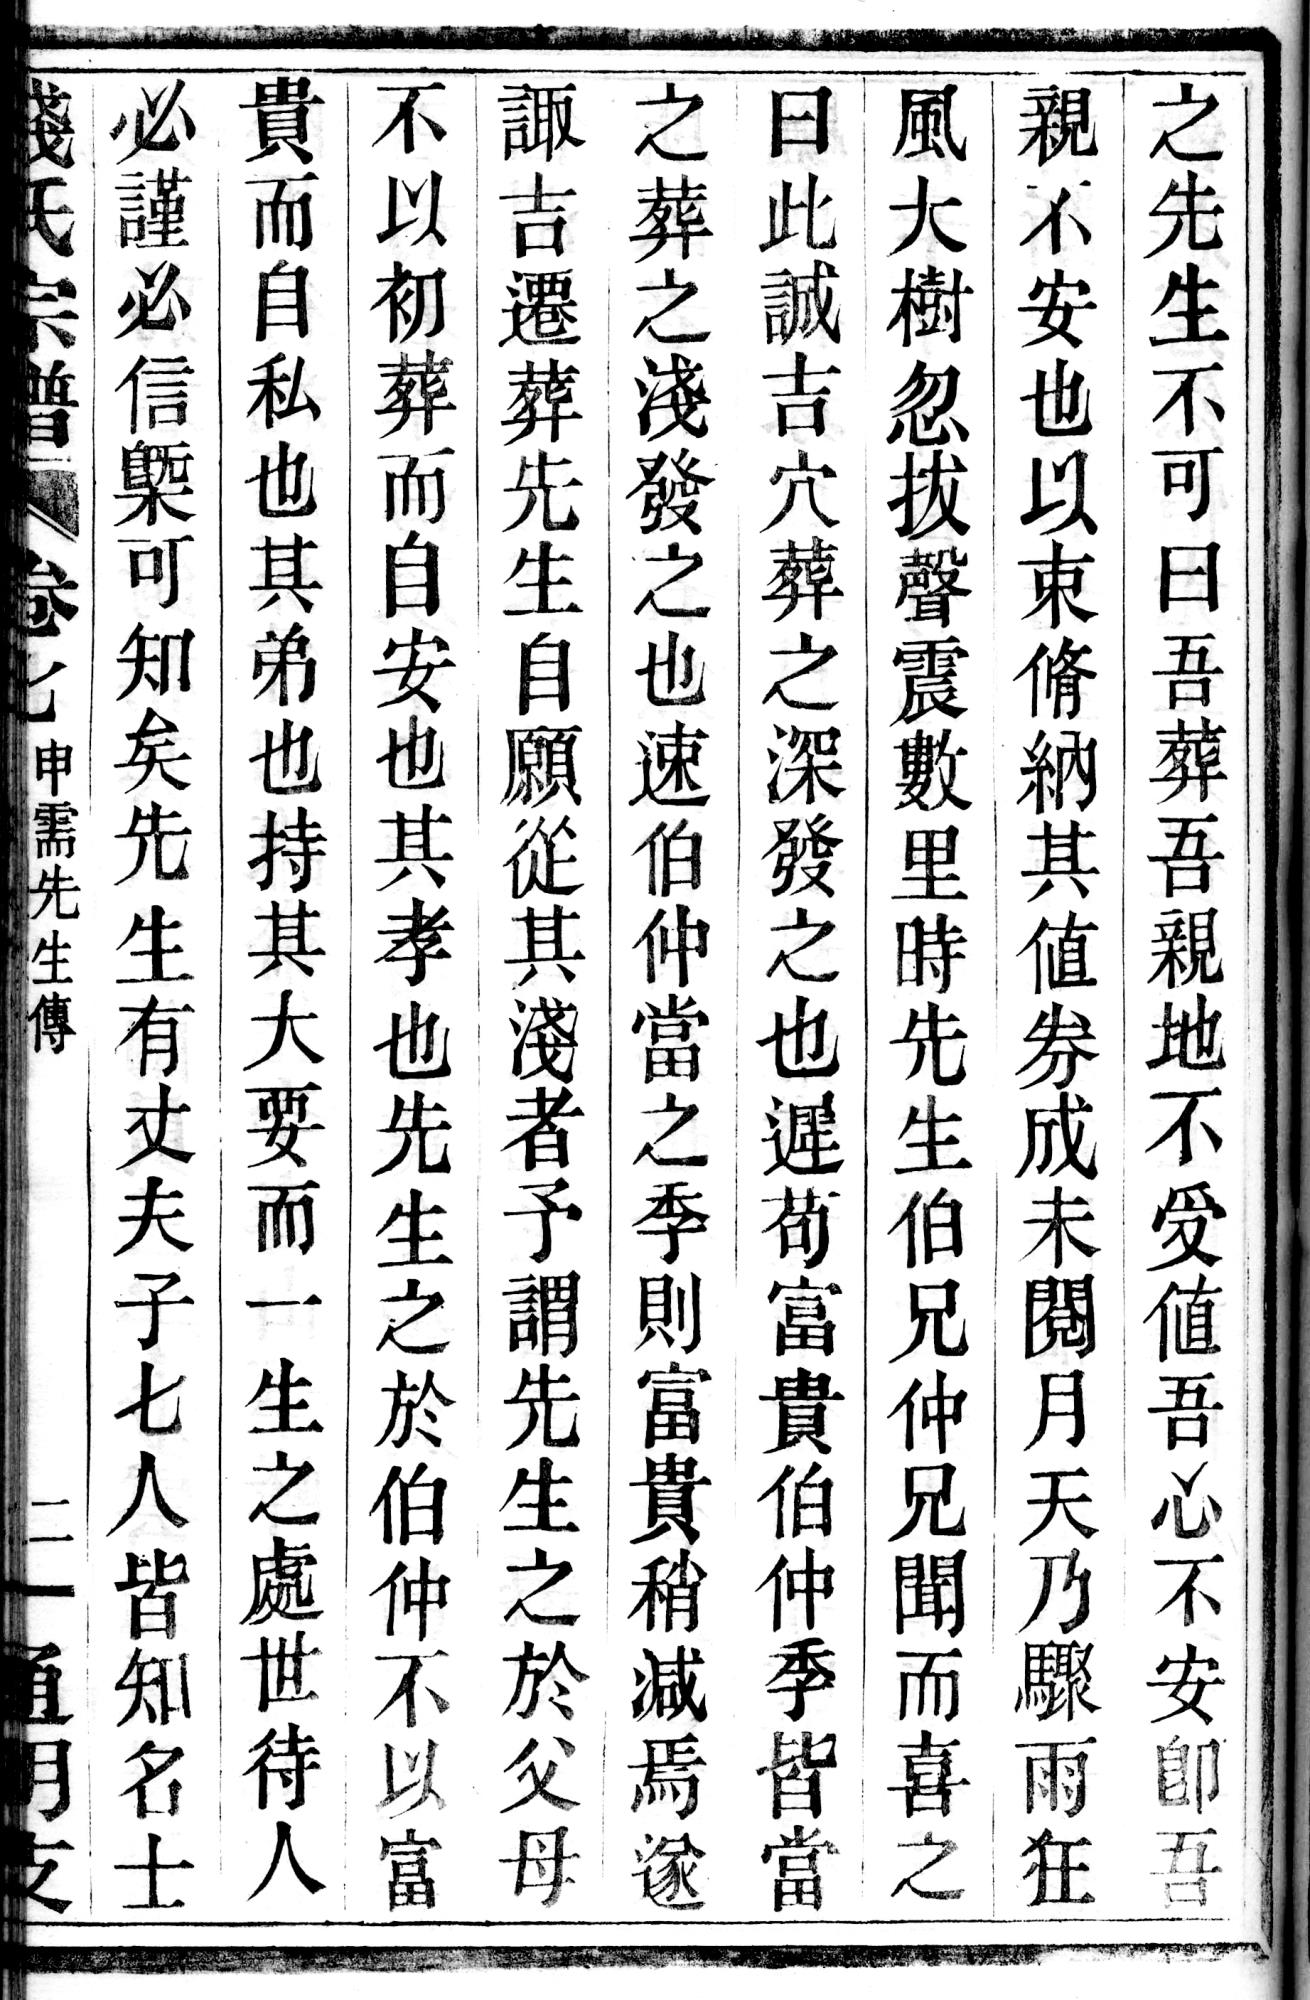 之先生不可曰吾葬吾親地不受値吾心不安卽吾
親不安也以束脩納其値劵成未閱月天乃驟雨狂
風大樹忽拔聲震數里時先生伯兄仲兄聞而喜之
曰此誠吉穴葬之深發之也遲茍富貴伯仲季皆當
之葬之淺發之也速伯仲當之季則富貴稍減焉遂
諏吉遷葬先生自願從其淺者予謂先生之於父母
不以初葬而自安也其孝也先生之於伯仲不以富
貴而自私也其弟也持其大要而一生之處世待人
必謹必信槩可知矣先生有丈夫子七人皆知名士
錢氏宗譜 卷七 申需先生傳 二 通明支